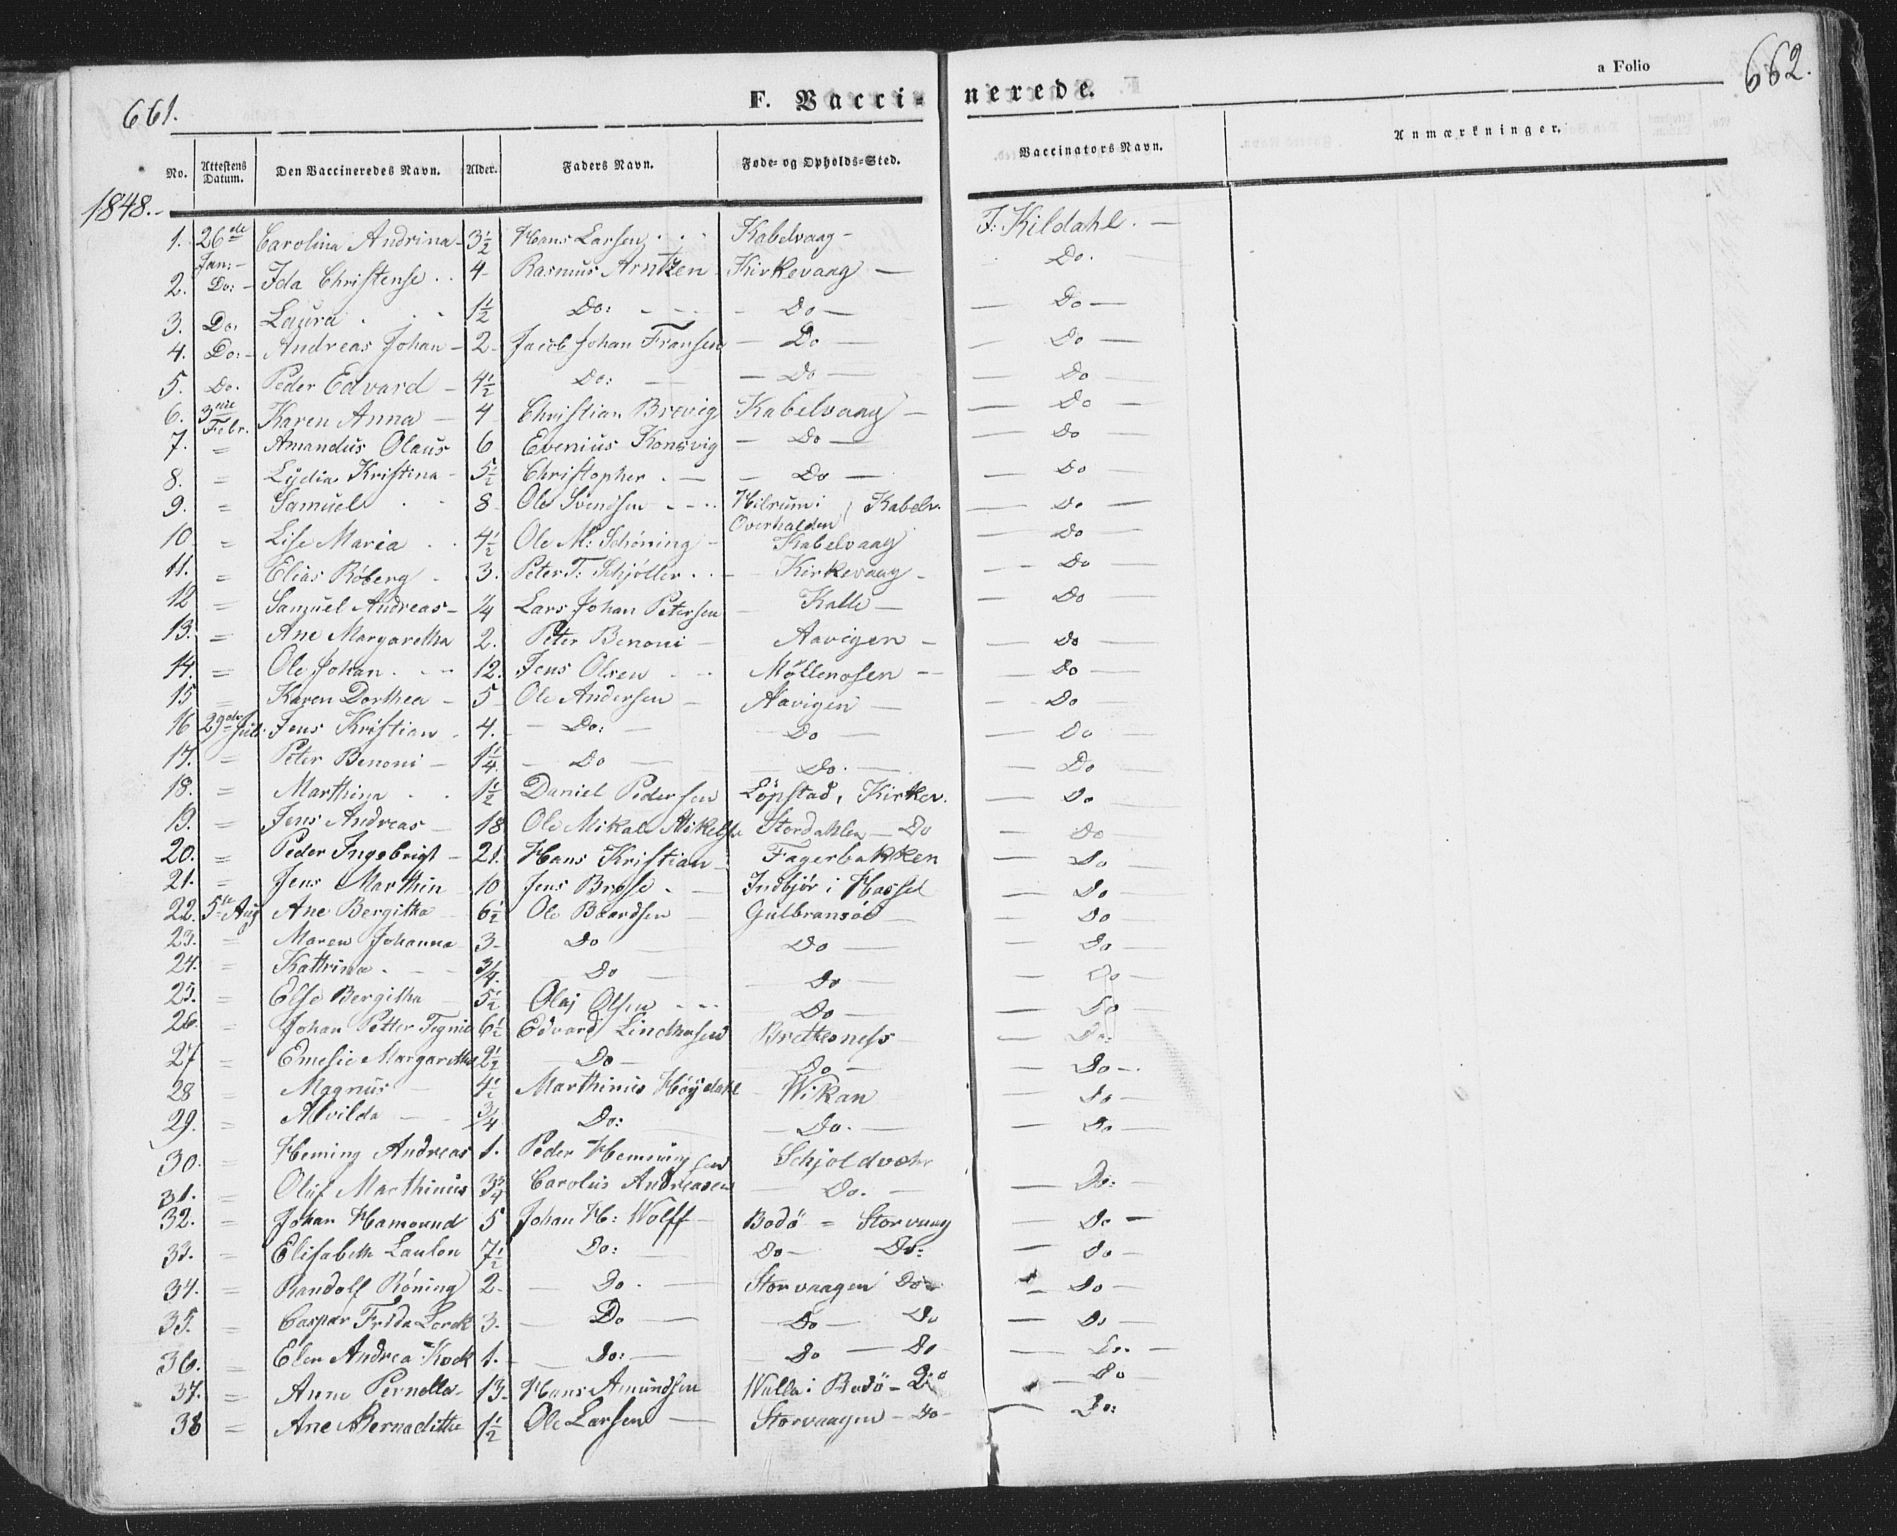 661.
F. Vacci-nerede.
a Folio
662.
No. Attestens Datum. Den Vaccineredes Navn. Alder. Faders Navn. Føde- og Opholds-Sted. Vaccinators Navn. Anmærkninger.
1848.-
1. 26de Jan:- Carolina Andrina- 3½ Hans Larsen Kabelvaag- F: Kildahl. -
2. Do:- Ida Christense 4 Rasmus Arntzen Kirkevaag - Do.
3. Do: Laura 1½ Do: - Do - - Do -
4. Do:- Andreas Johan- 2 Jacob Johan Fransen - Do - - Do -
5. Do. Peder Edvard - 4½ Do: - Do - Do
6. 3die Febr. Karen Anna - 4 Christian Brevig Kabelvaag - - Do -
7. = Amandus Olaus 6 Evenius Konsvig - Do - - Do
8. = Lydia Kristina- 5½ Christopher . - - Do - - Do -
9. = Samuel 8 Ole Svendsen Hilrum i Overhalden } Kabelv. - Do -
10. = Lise Maria 4½ Ole M: Schöning- Kabelvaag - Do -
11. = Elias Röberg 3. Peter T: Schjöller Kirkevaag - - Do
12 = Samuel Andreas- ¼ Lars Johan Petersen Kalle - - Do -
13. = Ane Margaretha 2. Peter Benoni - Aavigen - - Do -
14. = Ole Johan 12. Jens Olsen Möllenosen - - Do -
15 = Karen Dorthea - 5 Ole Andersen - Aavigen - - Do -
16 29de Juli. Jens Kristian 4. - Do: Do - - Do -
17. = Peter Benoni - 1¼ - Do - Do. - - Do -
18. = Marthina 1½ Daniel Pedersen Löpstad, Kirkev. - Do -
19. = Jens Andreas - 18 Ole Mikal Mikelse Stordahlen - Do - Do
20. = Peder Ingebrigt - 21. Hans Kristian Fagerbakken - Do
21. = Jens Marthin 10 Jens Brose Indbjör i Hassel - Do
22. 5te Aug Ane Bergitha 6½ Ole Baardsen Gulbransöe - Do
23. = Maren Johanna 3- Do Do - - Do -
24. = Kathrina ¾. Do Do - - Do -
25. = Else Bergitha 5½ Olaj Olsen Do - - Do
26. = Johan Petter Tegni 6½ Edvard Lindthusen Brettesness - Do:
27 = Emesie Margaretha 2½ - Do - Do - - Do -
28 = Magnus 4½ Marthinus Höydahl Wikan - Do -
29. = Alvilda ¾ Do: - Do. - - Do -
30. = Heming Andreas 1. Peder Hemmingsen Schjoldvehr
31. = Oluf Marthinus 3¾ Carolus Andreasen Do. - - Do:
32. = Johan Hamound 5 Johan H: Wolff- Bodö = Storvaag - Do -
33. = Elisabeth Laulon 7½ Do: Do - Do: - Do -
34. = Randolf Röning 2. - Do. - Storvaagen Do - Do -
35. = Caspar Frida Lerck 3. - Do - Do - Do - Do -
36. = Elen Andrea Kock 1. - Do: - Do - Do - Do. -
37. = Anne Pernella 13. Hans Amundsen Walle i Bodö - Do - Do
38 = Ane Bernaditha 1½ Ole Larsen - Storvaagen - Do - Do: